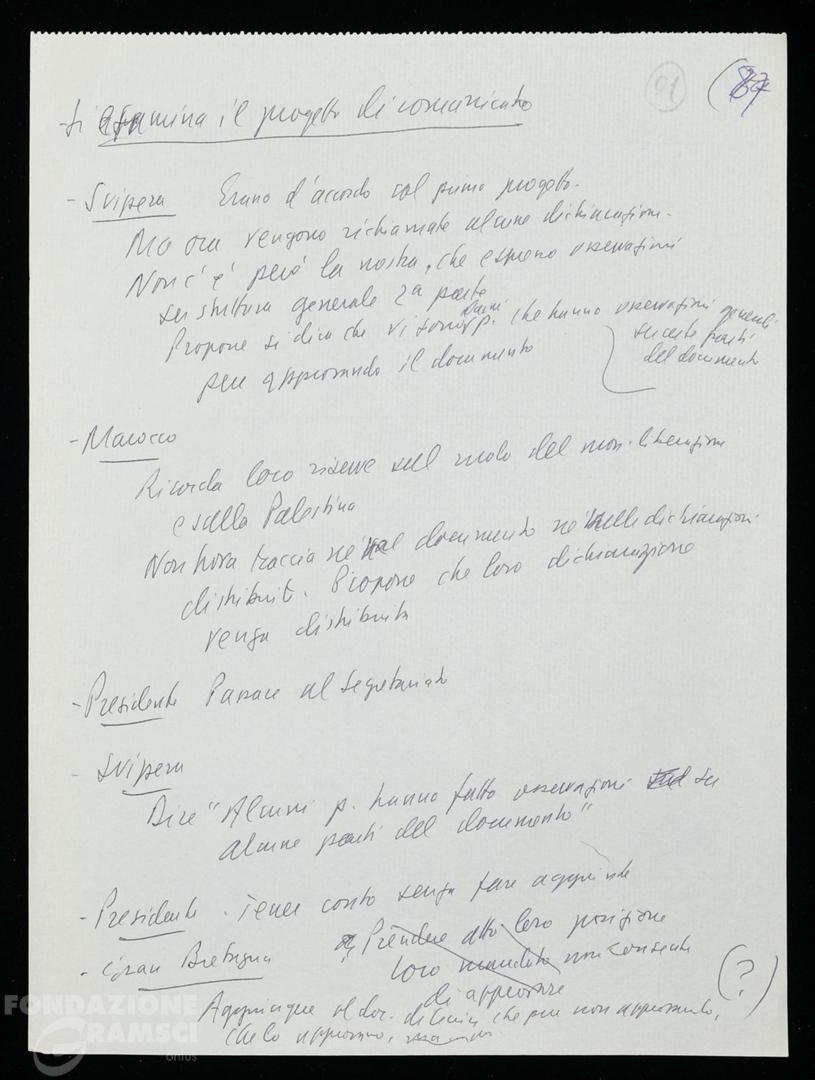 91 (87
Si esamina il progetto di comunicato
- Svizera Erano d'accordo sul primo progetto.
Ma ora vengono richiamate alcune dichiarazioni.
Non c'è però la nostra, che espresso osservazioni
su struttura generale 2a parte
Propone si dica che vi sono alcuni p. che hanno osservazioni generali
su certe parti
del documento
pur approvando il documento
- Marocco
Ricorda loro riserve sul ruolo del mov. liberazione
e sulla Palestina
Non trova traccia nè nel documento nè nelle dichiarazioni
distribuite. Propone che loro dichiarazione
venga distribuita
- Presidente Passare al Segretariato
- Svizera
Dire "Alcuni p. hanno fatto osservazioni su
alcune parti del documento"
- Presidente. Tener conto senza fare aggiunte
- Gran Bretagna Prendere atto loro posizione
loro mandato non consente
di approvare
(?)
Aggiungere al doc. che pur non approvando,
che lo
FONDAZIONE
GRAMSCI
onlus